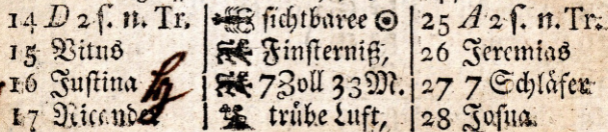 14 D 2 s. n. Tr. sichtbaree ☉ 25 A 2 s. n. Tr.
15 Vitus Finsterniß, 26 Jeremias
16 Justina 7 Zoll 33 M. 27 7 Schläfer
17 Nicander trübe Luft, 28 Josua